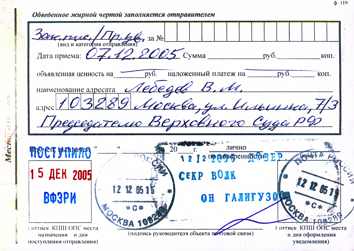 ф. 119
Обведенное жирной чертой заполняется отправителем
Зак. пис./Пр. ув. за №
(вид и категория отправления)
Дата приема: 07.12.2005 Сумма руб. коп.
объявленная ценность на руб. наложенный платеж на руб. коп.
наименование адресата Лебедев В.М.
адрес 103289 Москва, ул. Ильинка, 7/3
Председателю Верховного Суда РФ
ПОСТУПИЛО
15 ДЕК 2005
ВФЗРИ
20 г. лично
СЕКР ВОЛК
ОН ГАЛИГУЗОВ
12 12 05 18
МОСКВА 109289
ПОЧТА РОССИИ
12 12 05 18
МОСКВА
оттиск КПШ ОПС места
поступления отправления)
(подпись руководителя объекта почтовой связи)
оттиск КПШ ОПС места
и дня оформления
уведомления)